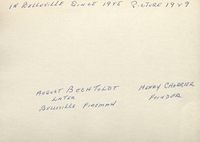 IN BELLEVILLE SINCE 1945 PICTURE 1949
AUGUST BECHTOLDT HENRY
LATER FOUNDER
BELLEVILLE FIREMAN